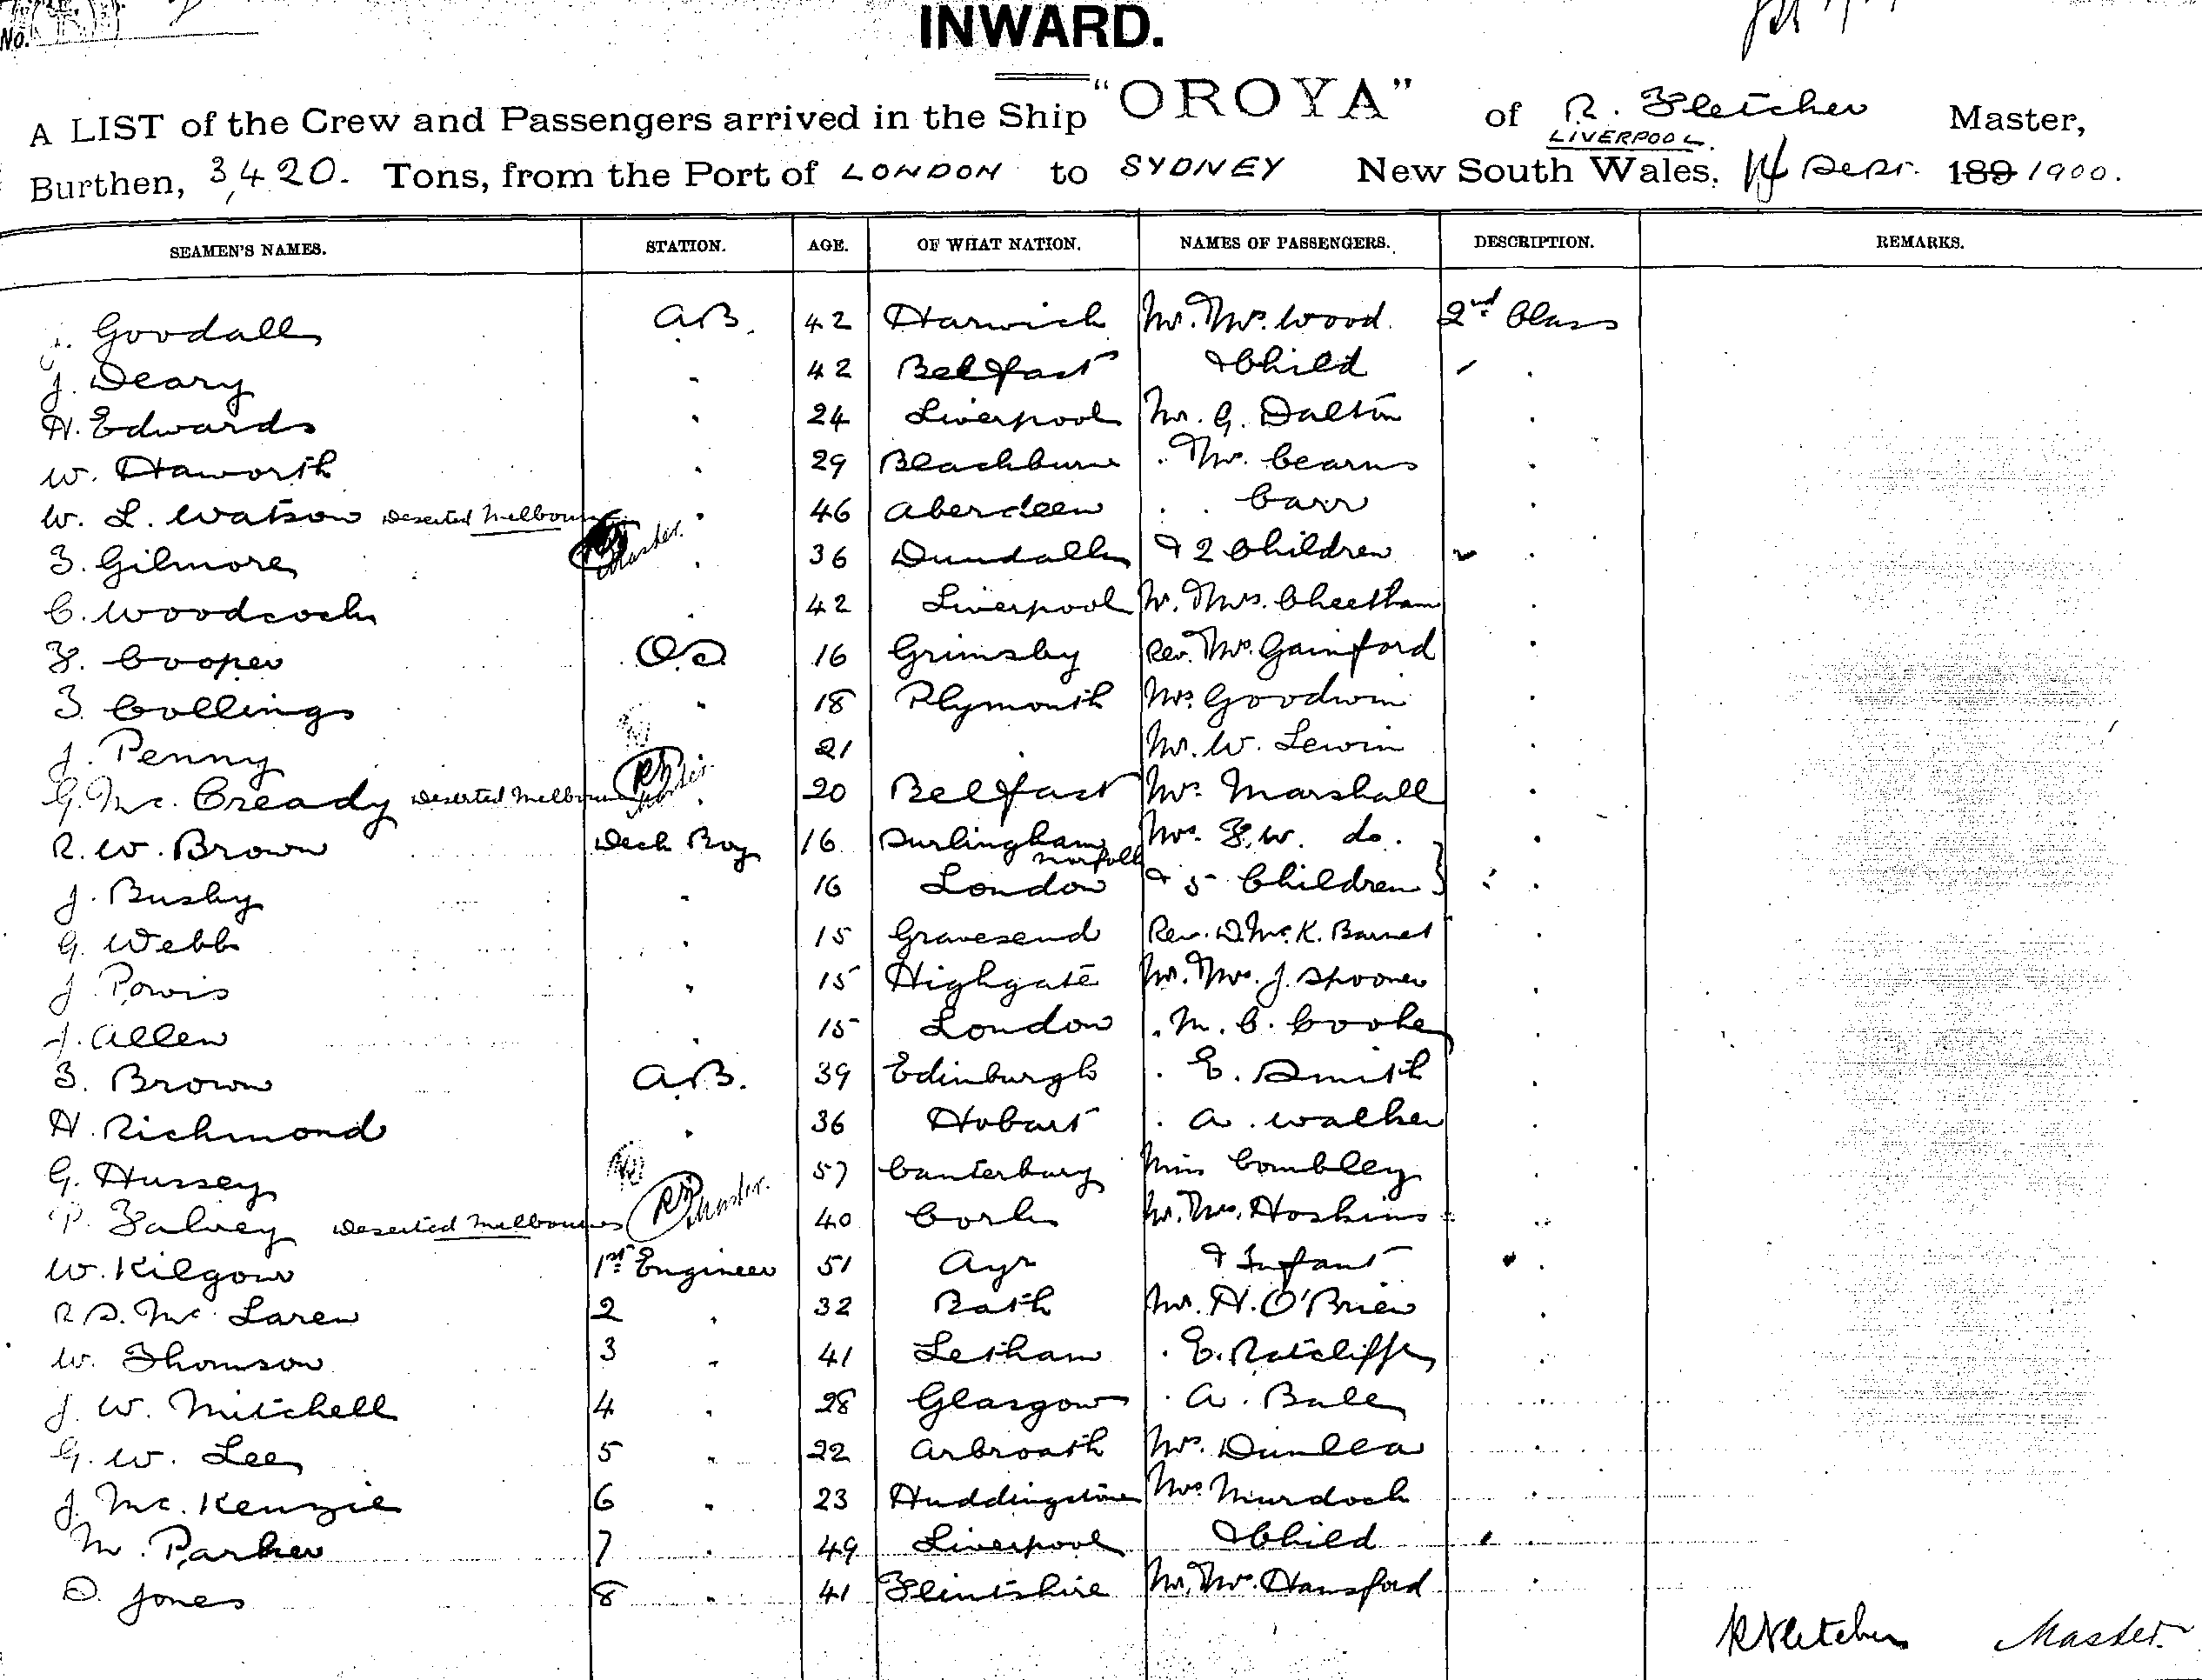 No.
INWARD.
A LIST of the Crew and Passengers arrived in the Ship "OROYA" of R. Fletcher Master,
LIVERPOOL.
Burthen, 3,420. Tons, from the Port of LONDON to SYDNEY New South Wales, 14 Sepr. 189 1900.
SEAMEN'S NAMES. STATION. AGE. OF WHAT NATION. NAMES OF PASSENGERS. DESCRIPTION. REMARKS.
Goodall A.B. 42 Harwich Mr. Mrs. Wood. 2nd Class
J. Deary " 42 Belfast & Child
H. Edwards " 24 Liverpool Mr. G. Dalton
W. Haworth " 29 Blackburn " Mrs. Cearns
W. L. Watson Deserted Melbourne Master. " 46 Aberdeen " " Carr
Gilmore " 36 Dundalk & 2 Children
C. Woodcock " 42 Liverpool Mr. Mrs. Cheetham
F. Cooper O.S. 16 Grimsby Rev. Mrs. Gainford
Collings " 18 Plymouth Mrs. Goodwin
J. Penny " 21 " Mr. W. Lewin
G. Mc. Cready Deserted Melbourne Master " 20 Belfast Mrs. Marshall
R. W. Brown Deck Boy 16 Durlingham Norfolk Mrs. F. W. do.
J. Busby " 16 London & 5 Children
G. Webb " 15 Gravesend Rev. D. Mc. K. Barnet
J. Powis " 15 Highgate Mr. Mrs. J. Spooner
J. Allen " 15 London " M. C. Cooke
Brown A.B. 39 Edinburgh " E. Smith
H. Richmond " 36 Hobart " A. Walker
G. Hussey 57 Canterbury Miss Combley
P. Falvey Deserted Melbourne Master. 40 Cork Mr. Mrs. Hoskins
W. Kilgour 1st Engineer 51 Ayr & Infant
R. S. Mc. Laren 2 " 32 Bath Mr. H. O'Brien
W. Thomson 3 " 41 Letham " E. Ratcliffe
J. W. Mitchell 4 " 28 Glasgow " A. Bale
G. W. Lee 5 " 22 Arbroath Mrs. Dunlea
J. Mc. Kenzie 6 " 23 Haddingstone Mrs Murdoch
M. Parker 7 " 49 Liverpool & Child
D. Jones 8 " 41 Flintshire Mr. Mrs. Hansford
R Fletcher Master.